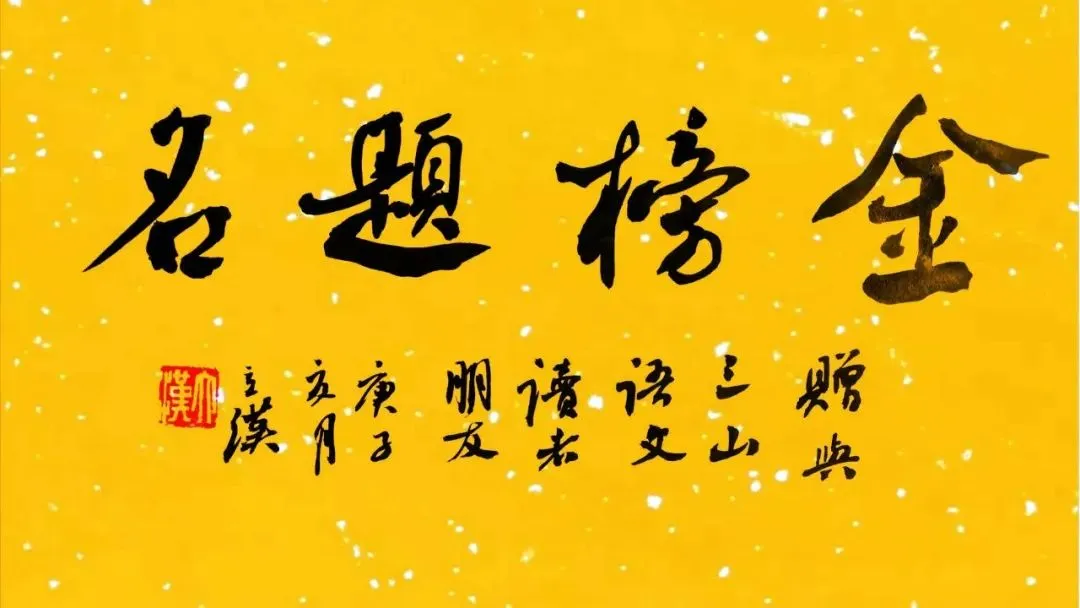 金榜題名
贈與
三山
语文
讀者
朋友
庚子
亥月
立漢
立漢